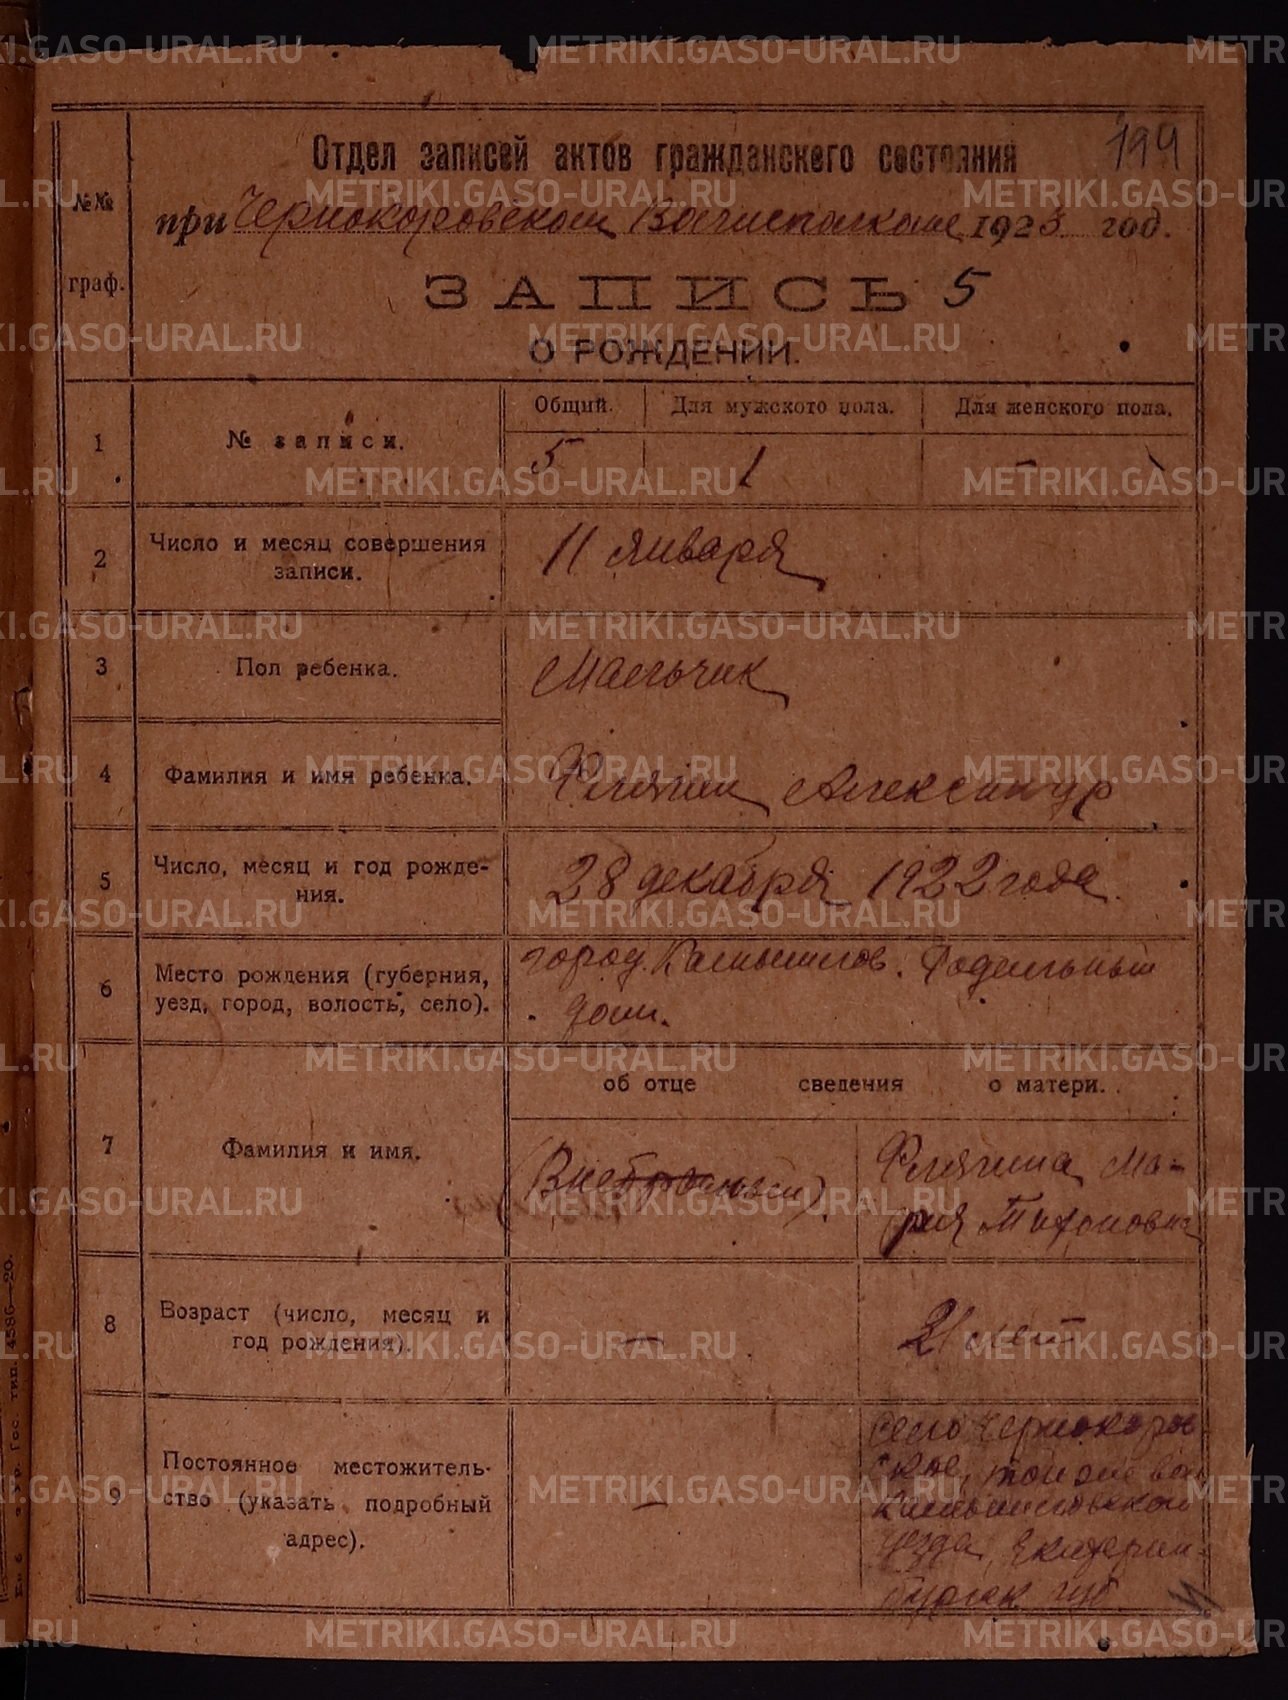 199
Отдел записей актов гражданского состояния
при Чернокоровском Волисполкоме 1923 год.
№№ граф.
ЗАПИСЬ 5
О РОЖДЕНИИ.
Общий. Для мужского пола. Для женского пола.
1 № записи. 5 1 -
2 Число и месяц совершения записи. 11 января
3 Пол ребенка. Мальчик
4 Фамилия и имя ребенка. Александр
5 Число, месяц и год рождения. 28 декабря 1922 года.
6 Место рождения (губерния, уезд, город, волость, село). город Камышлов. Родильный
дом.
об отце сведения о матери.
7 Фамилия и имя. (Внебрачный) Ма-
рия Тихоновна
8 Возраст (число, месяц и год рождения). — 21 лет
9 Постоянное местожительство (указать подробный адрес). — село Чернокоров
ское, той же вол
Камышловского
уезда, Екатерин-
бургск губ.
METRIKI.GASO-URAL.RU